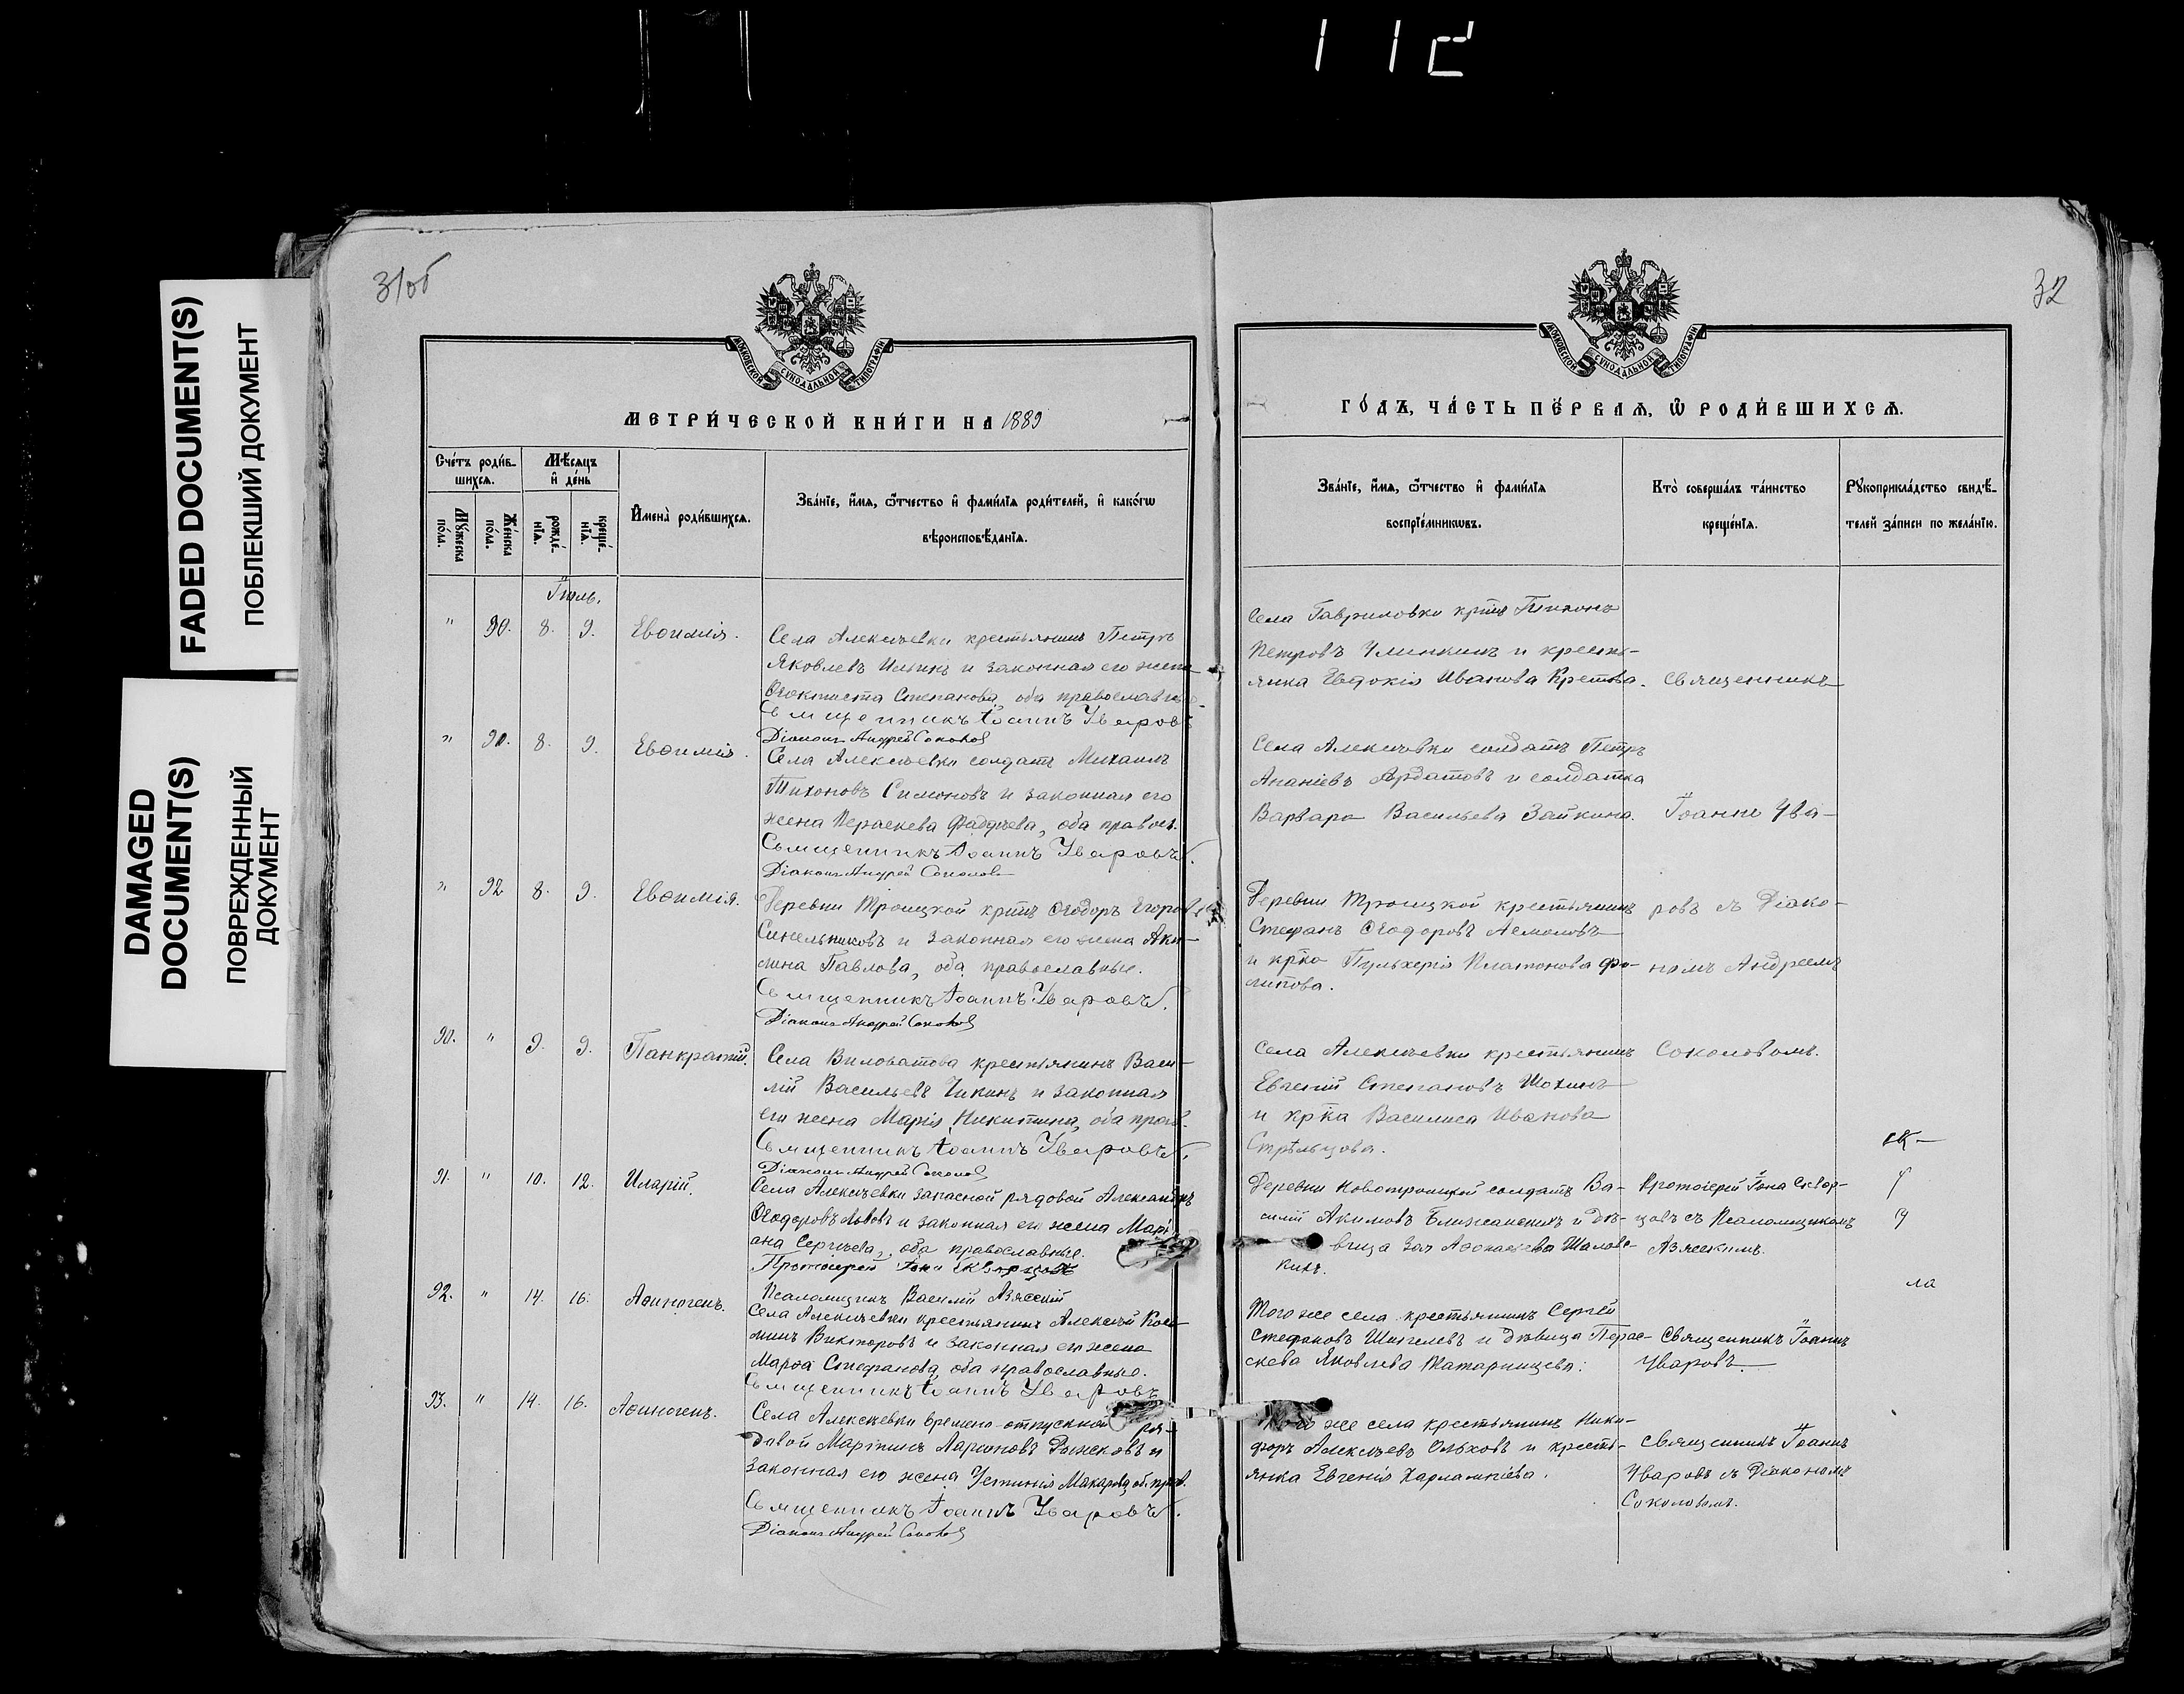 112
FADED DOCUMENT(S)
ПОБЛЕКШИЙ ДОКУМЕНТ
DAMAGED
DOCUMENT(S)
ПОВРЕЖДЕННЫЙ
ДОКУМЕНТ
31об
МОСКОВСКОЙ СѴНОДАЛЬНОЙ ТИПОГРАФІИ
МЕТРИ́ЧЕСКОЙ КНИ́ГИ НА 1889
Сче́тъ роди́в-
шихсѧ.
Мѣ́сѧцъ
и҆ де́нь
Мꙋ́жеска
по́ла.
Же́нска
по́ла.
рожде́-
нїѧ.
креще́-
нїѧ.
И҆мена̀ роди́вшихсѧ.
Зва́нїе, и҆́мѧ, ѻ҆́тчество и҆ фами́лїѧ роди́телей, и҆ како́гѡ
вѣроисповѣ́данїѧ.
Іюль.
" 90. 8. 9. Евѳимія.
Села Алексѣевки крестьянинъ Петръ
Яковлевъ Илькинъ и законная его жена
Ѳеоктиста Степанова, оба православные
Священникъ Іоаннъ Уваровъ
Діаконъ Андрей Соколов
" 90. 8. 9. Евѳимія.
Села Алексѣевки солдатъ Михаилъ
Тихоновъ Симоновъ и законная его
жена Параскева Фаддѣева, оба правосл.
Священникъ Іоаннъ Уваровъ.
Діаконъ Андрей Соколов
" 92 8. 9. Евѳимія.
Деревни Троицкой кртнъ Ѳеодоръ Егоровъ
Синельниковъ и законная его жена Аки-
лина Павлова, оба православные.
Священникъ Іоаннъ Уваровъ.
Діаконъ Андрей Соколов
90. " 9. 9. Панкратій.
Села Виловатова крестьянинъ Васи-
лій Васильевъ Чикинъ и законная
его жена Марія Никитина, оба прав.
Священникъ Іоаннъ Уваровъ.
Діаконъ Андрей Соколов
91. " 10. 12. Иларій.
Села Алексѣевки запасной рядовой Александръ
Ѳеодоровъ Львовъ и законная его жена Марі-
ана Сергѣева, оба православные.
Протоіерей Іона Скворцовъ
Псаломщикъ Василій Азясскій
92. " 14. 16. Аѳиногенъ.
Села Алексѣевки крестьянинъ Алексѣй Козь-
минъ Викторовъ и законная его жена
Марѳа Стефанова, оба православные.
Священникъ Іоаннъ Уваровъ
93. " 14. 16. Аѳиногенъ.
Села Алексѣевки времено-отпускной ря-
довой Мартинъ Ларіоновъ Рыжковъ и
законная его жена Устинія Макарова, об. прав.
Священникъ Іоаннъ Уваровъ.
Діаконъ Андрей Соколов
32
МОСКОВСКОЙ СѴНОДАЛЬНОЙ ТИПОГРАФІИ
ГО́ДЪ, ЧА́СТЬ ПЕ́РВАѦ, Ѡ҆ РОДИ́ВШИХСѦ.
Зва́нїе, и҆́мѧ, ѻ҆́тчество и҆ фами́лїѧ
воспрїе́мникѡвъ.
Кто̀ соверша́лъ та́инство
креще́нїѧ.
Рꙋкоприкла́дство свидѣ́-
телей за́писи по жела́нїю.
Села Гавриловки кртнъ Тихонъ
Петровъ и кресть-
янка Евдокія Иванова Кретова.
Священникъ
Села Алексѣевки солдатъ Петръ
Ананіевъ Ардатовъ и солдатка
Варвара Васильева Зайкина.
Іоаннъ Ува-
Деревни Троицкой крестьянинъ
Стефанъ Ѳеодоровъ
и крка Пульхерія Платонова Фи-
липова.
ровъ съ Діако-
номъ Андреемъ
Села Алексѣевки крестьянинъ
Евгеній Степановъ Шохинъ
и крка Василиса Иванова
Стрѣльцова.
Соколовымъ.
Деревни Новотроицкой солдатъ Ва-
силій Акимовъ и дѣ-
вица
Протоіерей Іона Сквор-
цовъ съ Псаломщикомъ
Азясскимъ.
ла
Того же села крестьянинъ Сергѣй
Стефановъ Шипилевъ и дѣвица Парас-
кева Яковлева Татаринцева.
Священникъ Іоаннъ
Уваровъ.
Того же села крестьянинъ Ники-
форъ Алексѣевъ Ольховъ и кресть-
янка Евгенія Харлампіева.
Священникъ Іоаннъ
Уваровъ съ Діакономъ
Соколовымъ.